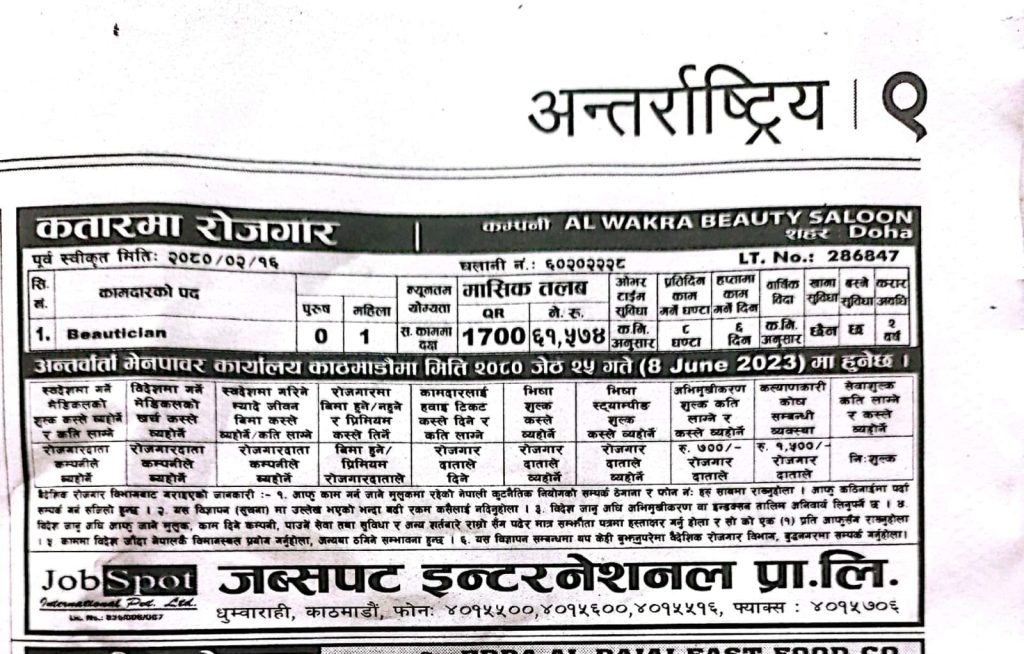 अन्तर्राष्ट्रिय | ९
कतारमा रोजगार | कम्पनी AL WAKRA BEAUTY SALOON
शहर Doha
पूर्व स्वीकृत मितिः २०८०/०२/१६ चलानी नं.: ६०२०२२२८ LT. No.: 286847
सि. नं. कामदारको पद पुरुष महिला न्यूनतम योग्यता मासिक तलब QR ने. रु. ओभर टाईम सुविधा प्रतिदिन काम गर्ने घण्टा हप्तामा काम गर्ने दिन वार्षिक विदा खाना सुविधा बस्ने सुविधा करार अवधि
1. Beautician 0 1 स. काममा दक्ष 1700 ६१,५७४ क.नि. अनुसार ८ घण्टा ६ दिन क.नि. अनुसार छैन छ २ वर्ष
अन्तर्वार्ता मेनपावर कार्यालय काठमाडौंमा मिति २०८० जेठ २५ गते (8 June 2023) मा हुनेछ ।
स्वदेशमा गर्ने मेडिकलको शुल्क कस्ले व्यहोर्ने र कति लाग्ने विदेशमा गर्ने मेडिकलको खर्च कस्ले व्यहोर्ने स्वदेशमा गरिने म्यादे जीवन बिमा कस्ले व्यहोर्ने/कति लाग्ने रोजगारमा बिमा हुने/नहुने र प्रिमियम कस्ले तिर्ने कामदारलाई हवाइ टिकट कस्ले दिने र कति लाग्ने भिषा शुल्क कस्ले व्यहोर्ने भिषा स्ट्याम्पीङ शुल्क कस्ले व्यहोर्ने अभिमुखीकरण शुल्क कति लाग्ने र कस्ले व्यहोर्ने कल्याणकारी कोष सम्बन्धी व्यवस्था सेवाशुल्क कति लाग्ने र कस्ले व्यहोर्ने
रोजगारदाता कम्पनीले ब्यहोर्ने रोजगारदाता कम्पनीले ब्यहोर्ने रोजगारदाता कम्पनीले ब्यहोर्ने बिमा हुने/ प्रिमियम रोजगारदाताले रोजगार दाताले दिने रोजगार दाताले व्यहोर्ने रोजगार दाताले व्यहोर्ने रु. ७००/- रोजगार दाताले रु. १,५००/- रोजगार दाताले निःशुल्क
बैदेशिक रोजगार विभागबाट गराइएको जानकारी :- १. आफु काम गर्न जाने मुलुकमा रहेको नेपाली कुटनैतिक नियोगको सम्पर्क ठेगाना र फोन नं: हरु साथमा राख्नुहोला । आफु कठिनाईमा पर्दा
सम्पर्क गर्न सजिलो हुन्छ । २. यस विज्ञापन (सुचना) मा उल्लेख भएको भन्दा बढी रकम कसैलाई नदिनुहोला । ३. विदेश जानु अघि अभिमुखीकरण वा इन्डक्सन तालिम अनिवार्य लिनुपर्ने छ । ४.
विदेश जानु अघि आफु जाने मुलुक, काम दिने कम्पनी, पाउने सेवा तथा सुविधा र अन्य शर्तबारे राम्रो सँग पढेर मात्र सम्झौता पत्रमा हस्ताक्षर गर्नु होला र सो को एक (१) प्रति आफुसँग राख्नुहोला
। ५ काममा विदेश जाँदा नेपालकै विमानस्थल प्रयोग गर्नुहोला, अन्यथा ठगिने सम्भावना हुन्छ । ६. यस विज्ञापन सम्बन्धमा थप केही बुझ्नुपरेमा वैदेशिक रोजगार विभाग, बुद्धनगरमा सम्पर्क गर्नुहोला।
Job Spot जब्सपट इन्टरनेशनल प्रा.लि.
International Pvt. Ltd.
धुम्वाराही, काठमाडौं, फोनः ४०१५५००,४०१५६००,४०१५५१६, फ्याक्स : ४०१५७०६